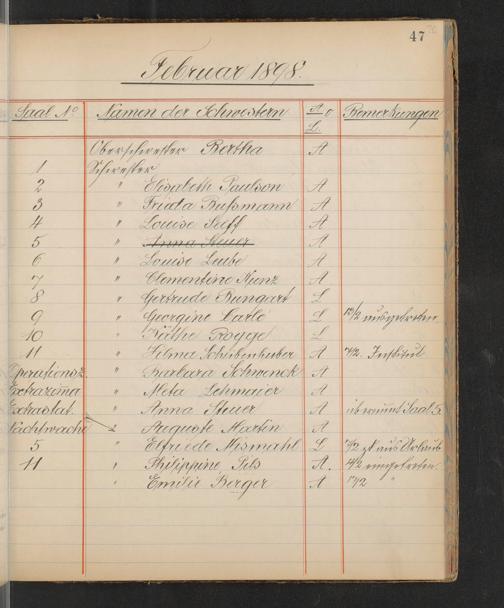 47
Februar 1898.
Saal No Namen der Schwestern A o L. Bemerkungen
Oberschwester Bertha A
1 Schwester
2 " Elisabeth Paulson A
3 " Frida Bußmann A
4 " Louise Seiff A
5 " Anna Steuer A
6 " Louise Leube A
7 " Clementine Kunz A
8 " Gertrude Bungart L
9 " Georgine Carlé L 10/2 ausgetreten.
10 " Käthe Rogge L
11 " Helma A 7/2. Institut
Operationsz. " Barbara Schwenck A
Extrazima " Meta Lehmaier A
Extrastat. " Anna Steuer A übernimmt Saal 5.
Nachtwache " Auguste Martin A
5 " Elfriede Mismahl L aus Urlaub
11 " Philippine Pils A. 4/2 eingetreten.
" Emilie Berger A "